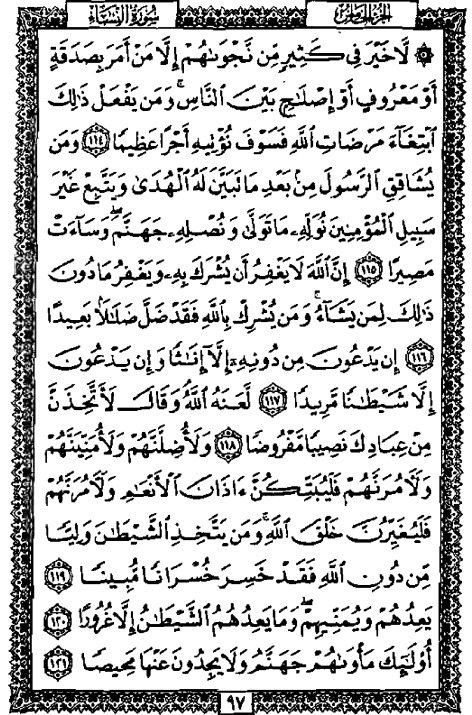 سُورَةُ النِّسَاءِ
الجُزْءُ الخَامِسُ
۞ لَّا خَيْرَ فِي كَثِيرٍ مِّن نَّجْوَىٰهُمْ إِلَّا مَنْ أَمَرَ بِصَدَقَةٍ
أَوْ مَعْرُوفٍ أَوْ إِصْلَٰحٍۭ بَيْنَ النَّاسِ ۚ وَمَن يَفْعَلْ ذَٰلِكَ
ابْتِغَآءَ مَرْضَاتِ اللَّهِ فَسَوْفَ نُؤْتِيهِ أَجْرًا عَظِيمًا ١١٤ وَمَن
يُشَاقِقِ الرَّسُولَ مِنۢ بَعْدِ مَا تَبَيَّنَ لَهُ الْهُدَىٰ وَيَتَّبِعْ غَيْرَ
سَبِيلِ الْمُؤْمِنِينَ نُوَلِّهِۦ مَا تَوَلَّىٰ وَنُصْلِهِۦ جَهَنَّمَ ۖ وَسَآءَتْ
مَصِيرًا ١١٥ إِنَّ اللَّهَ لَا يَغْفِرُ أَن يُشْرَكَ بِهِۦ وَيَغْفِرُ مَا دُونَ
ذَٰلِكَ لِمَن يَشَآءُ ۚ وَمَن يُشْرِكْ بِاللَّهِ فَقَدْ ضَلَّ ضَلَٰلًۢا بَعِيدًا
١١٦ إِن يَدْعُونَ مِن دُونِهِۦٓ إِلَّآ إِنَٰثًا وَإِن يَدْعُونَ
إِلَّا شَيْطَٰنًا مَّرِيدًا ١١٧ لَّعَنَهُ اللَّهُ ۘ وَقَالَ لَأَتَّخِذَنَّ
مِنْ عِبَادِكَ نَصِيبًا مَّفْرُوضًا ١١٨ وَلَأُضِلَّنَّهُمْ وَلَأُمَنِّيَنَّهُمْ
وَلَءَامُرَنَّهُمْ فَلَيُبَتِّكُنَّ ءَاذَانَ الْأَنْعَٰمِ وَلَءَامُرَنَّهُمْ
فَلَيُغَيِّرُنَّ خَلْقَ اللَّهِ ۚ وَمَن يَتَّخِذِ الشَّيْطَٰنَ وَلِيًّا
مِّن دُونِ اللَّهِ فَقَدْ خَسِرَ خُسْرَانًا مُّبِينًا ١١٩
يَعِدُهُمْ وَيُمَنِّيهِمْ ۖ وَمَا يَعِدُهُمُ الشَّيْطَٰنُ إِلَّا غُرُورًا ١٢٠
أُو۟لَٰٓئِكَ مَأْوَىٰهُمْ جَهَنَّمُ وَلَا يَجِدُونَ عَنْهَا مَحِيصًا ١٢١
٩٧